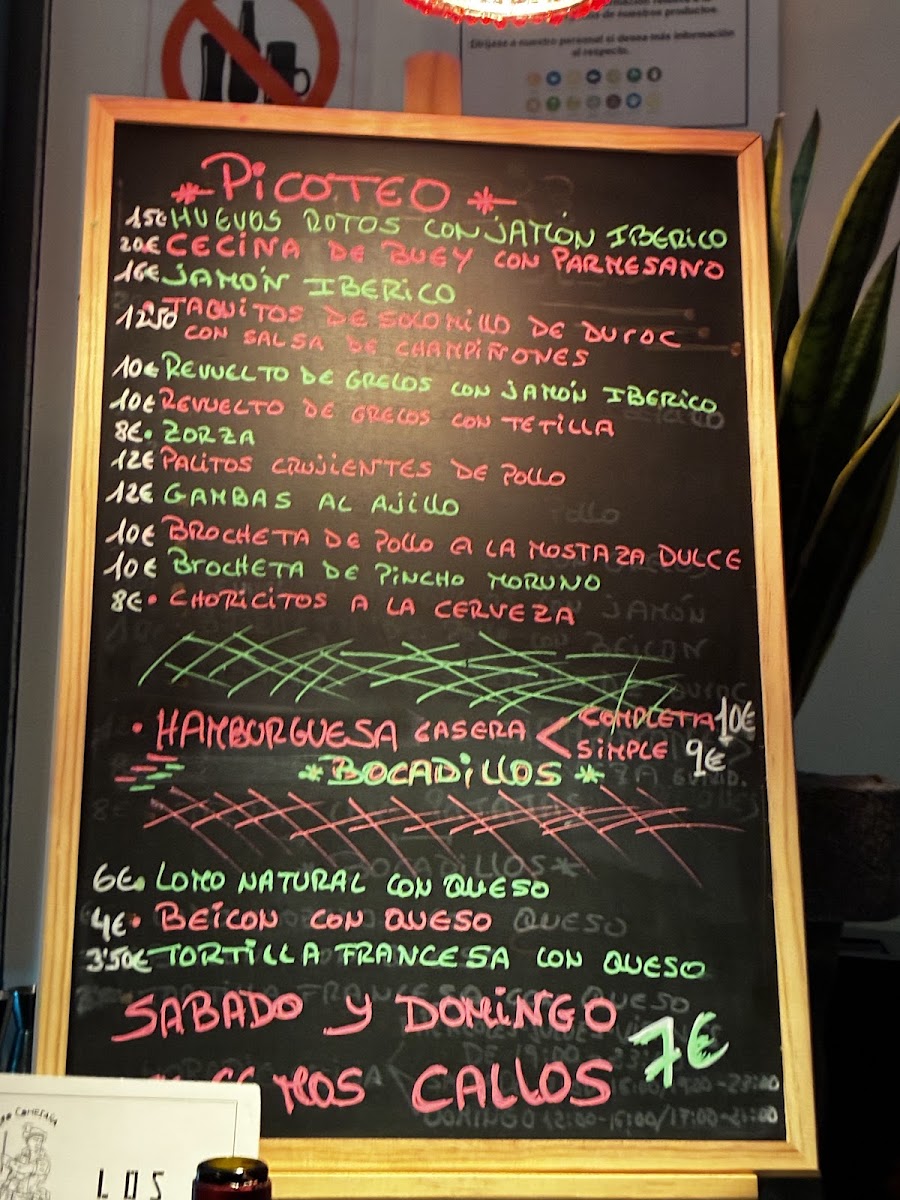 de nuestros productos.
Diríjase a nuestro personal si desea más información
al respecto.
*PICOTEO*
15€ HUEVOS ROTOS CON JAMÓN IBERICO
20€ CECINA DE BUEY CON PARMESANO
16€ JAMÓN IBERICO
12'50 • TAQUITOS DE SOLOMILLO DE DUROC
CON SALSA DE CHAMPIÑONES
10€ REVUELTO DE GRELOS CON JAMÓN IBERICO
10€ REVUELTO DE GRELOS CON TETILLA
8€ • ZORZA
12€ PALITOS CRUJIENTES DE POLLO
12€ GAMBAS AL AJILLO
10€ BROCHETA DE POLLO A LA MOSTAZA DULCE
10€ BROCHETA DE PINCHO MORUNO
8€ • CHORICITOS A LA CERVEZA
• HAMBURGUESA CASERA < COMPLETA 10€
SIMPLE 9€
*BOCADILLOS*
6€ • LOMO NATURAL CON QUESO
4€ • BEICON CON QUESO QUESO
3'50€ TORTILLA FRANCESA CON QUESO
SABADO Y DOMINGO 7€
MOS CALLOS
DOMINGO 12:00-16:00/17:00-24:00
LOS